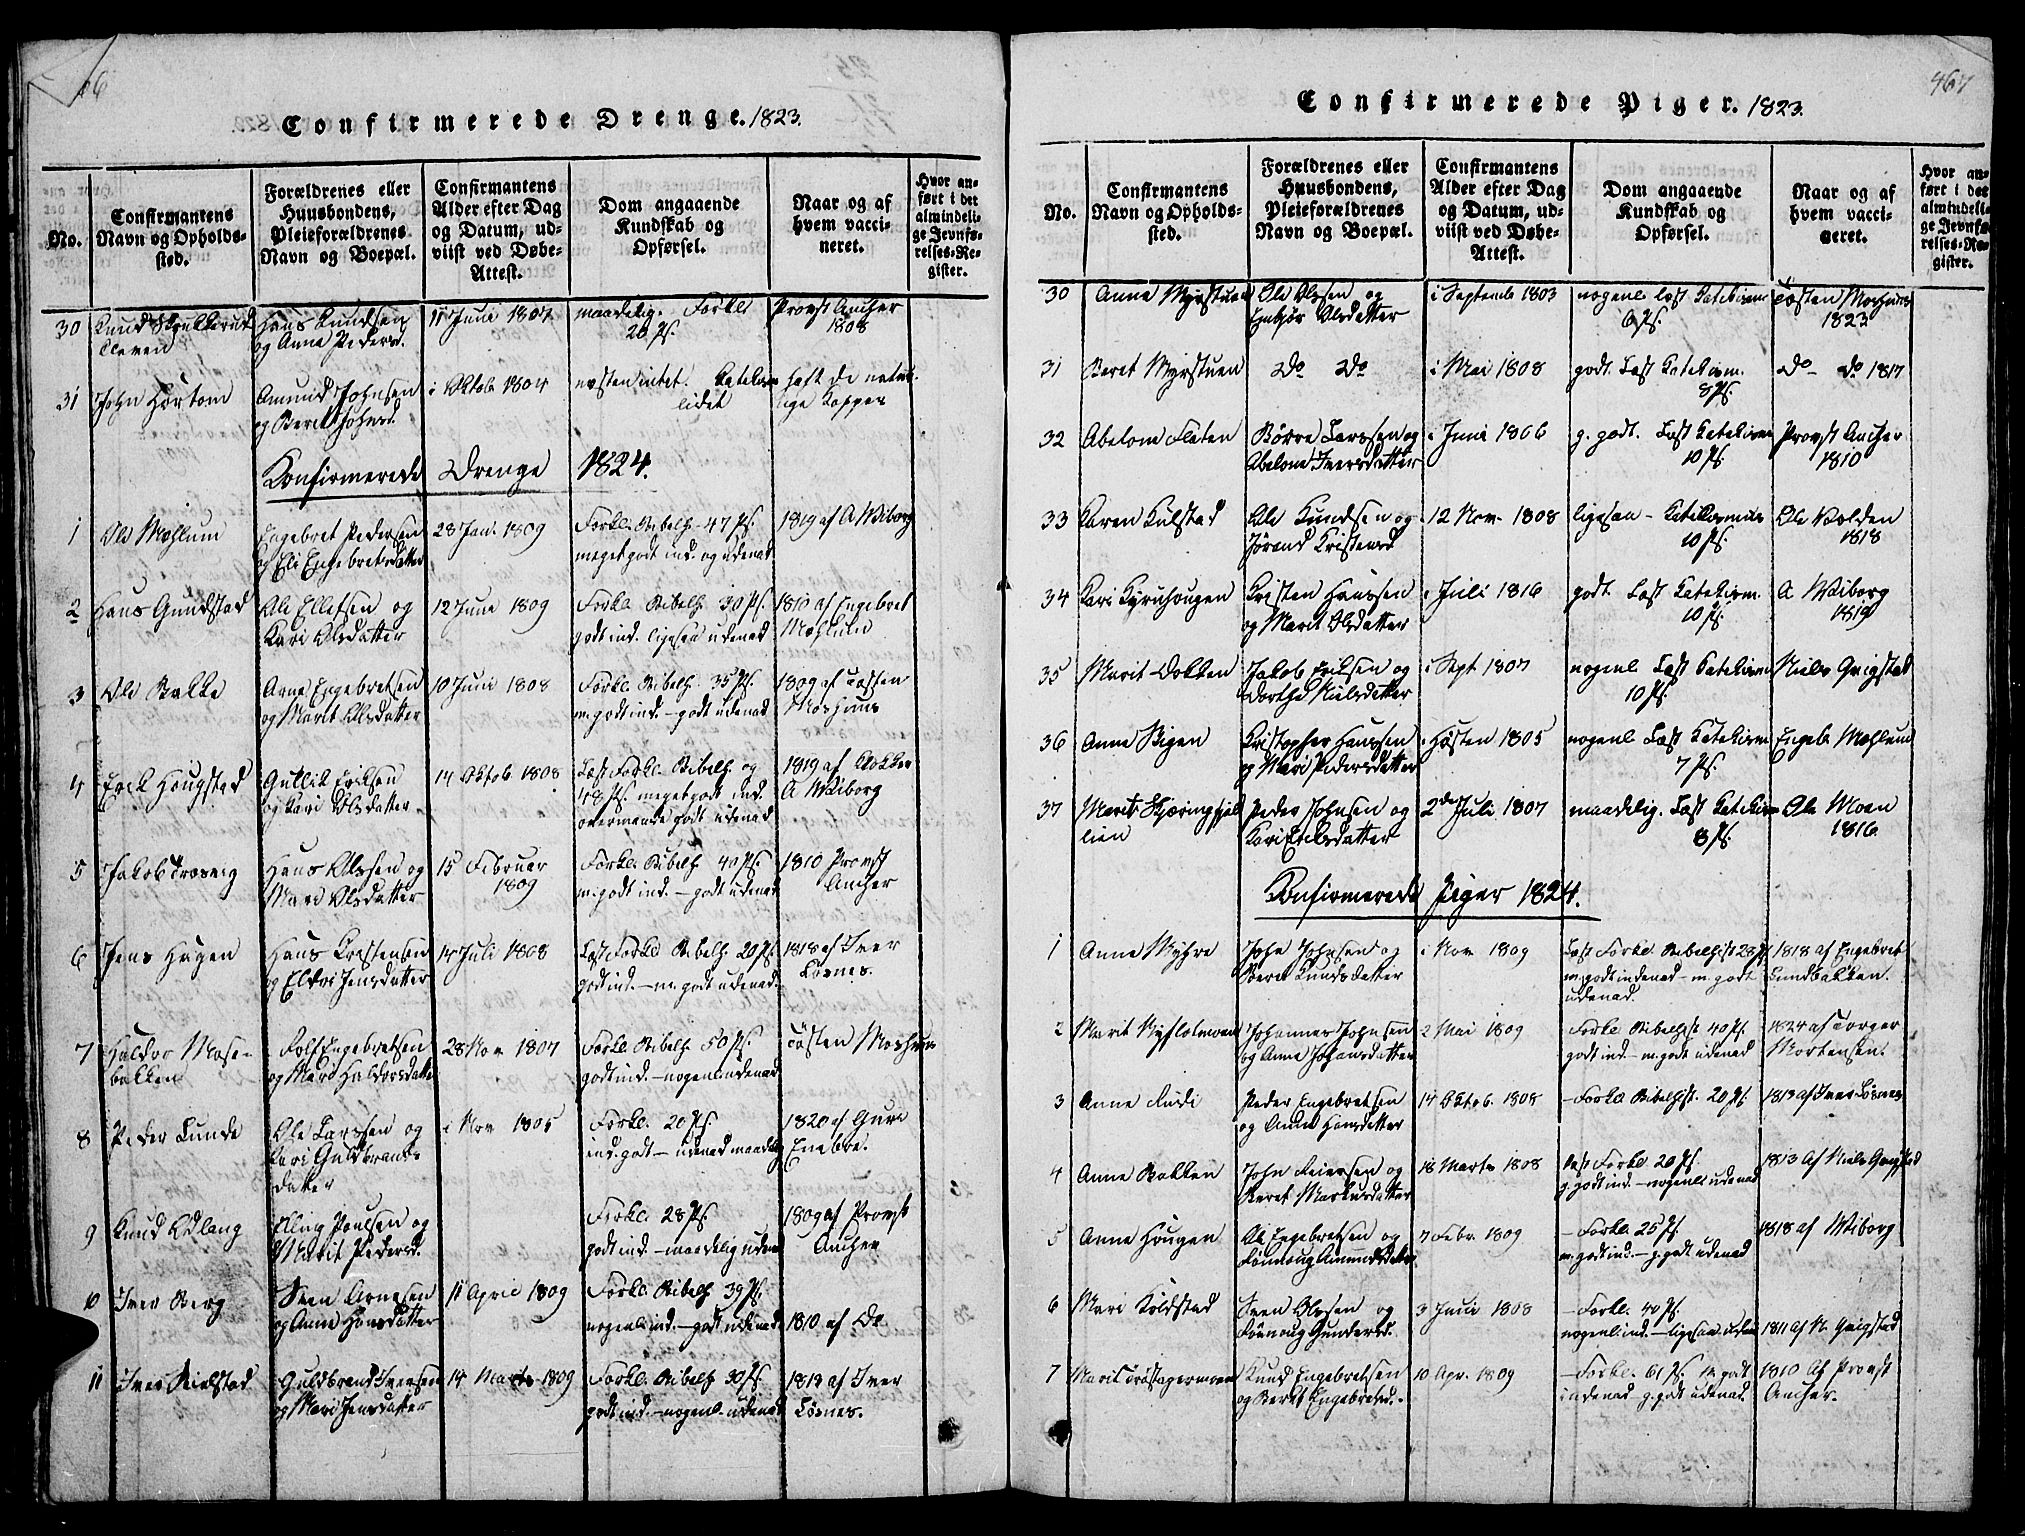 Confirmerede Drenge. 1823.
No.
Confirmantens
Navn og Opholds-
sted.
Forældrenes eller
Huusbondens,
Pleieforældrenes
Navn og Boepæl.
Confirmantens
Alder efter Dag
og Datum, ud-
viist ved Døbe-
Attest.
Dom angaaende
Kundskab og
Opførsel.
Naar og af
hvem vacci-
neret.
Hvor an-
ført i det
almindeli-
ge Jevnfø-
relses-Re-
gister.
30 Knud
Hans Knudsen
og Anne Peders.
11 Juni 1807
maadelig. Forkl.
20 Ps.
Provst Ancher
1808
31 John Hortom
Amund Johnsen
og Berit Johnsd.
i Oktob 1804
næsten intet. Katekism
lidet
haft de natur-
lige Kopper
Konfirmerede Drenge 1824.
1 Ole Mæhlum
Engebret Pedersen
og Eli Engebretsdatter
28 Jan. 1809
Forkl. Bibelh. 47 Ps.
meget godt ind. og udenad
1819 af A Wiborg
2 Hans Gundstad
Ole Ellefsen og
Kari Olsdatter
12 Juni 1809
Forkl. Bibelh. 30 Ps.
godt ind. ligesaa udenad
1810 af Engebret
Mæhlum
3 Ole Bakke
Arne Engebretsen
og Marit Olsdatter
10 Juni 1808
Forkl. Bibelh. 35 Ps.
m. godt ind. – godt udenad
1809 af Tosten
Moshuus
4 Erik Hougstad
Gutlik Eriksen
og Kari Olsdatter
14 Oktob. 1808
Læst Forkl. Bibelh. og
48 Ps. meget godt ind.
overmaade godt udenad
1819 af Klokker
A Wiborg
5 Jakob Trosvig
Hans Olssen og
Mari Olsdatter
15 Februar
1809
Forkl. Bibelh. 40 Ps.
m. godt ind. – godt udenad
1810 Provst
Ancher
6 Jens Hagen
Hans Kristensen
og Eldri Jensdatter
14 Juli 1808
Læst Forkl. Bibelh. 20 Ps.
godt ind. – m. godt udenad.
1818 af Iver
Losnes.
7 Haldor Mose-
bakken
Rolf Engebretsen
og Mari Haldorsdatter
28 Nov 1807
Forkl. Bibelh. 50 Ps.
godt ind. – nogenl. udenad
Tosten Moshuus
8 Peder Lunde
Ole Larssen og
Kari Guldbrands
datter
i Nov 1805
Forkl. 20 Ps.
ind. godt – udenad maadelig
1820 af Guri
Enebre.
9 Knud Odlang
Elling Poulsen og
Marit Pedersd.
Forkl. 28 Ps.
godt ind. – maadelig uden
1809 af Provst
Ancher
10 Iver Berg
Sven Arnesen
og Anne Hansdatter
11 April 1809
Forkl. Bibelh. 39 Ps.
nogenl. ind. – godt udenad.
1810 af Do
11 Iver Kielstad
Guldbrand Iversen
og Mari Jensdatter
14 Marts 1809
Forkl. Bibelh. 30 Ps.
godt ind. – nogenl. udenad
1818 af Iver
Losnes.
467
Confirmerede Piger. 1823.
No.
Confirmantens
Navn og Opholds-
sted.
Forældrenes eller
Huusbondens,
Pleieforældrenes
Navn og Boepæl.
Confirmantens
Alder efter Dag
og Datum, ud-
viist ved Døbe-
Attest.
Dom angaaende
Kundskab og
Opførsel.
Naar og af
hvem vacci-
neret.
Hvor an-
ført i det
almindeli-
ge Jevnfø-
relses-Re-
gister.
30 Anne Myrstuen
Ole Olssen og
Engebjør Olsdatter
i Septemb 1803
nogenl. læst Katekism
6 Ps.
Tosten Moshuus
1823
31 Beret Myrstuen
Do Do
i Mai 1808
godt. Læst Katekism.
8 Ps.
Do – Do 1817
32 Abelone Flaten
Børre Larssen og
Abelone Iversdatter
i Juni 1806
g. godt. Læst Katekism
10 Ps.
Provst Ancher
1810
33 Karen Kulstad
Ole Knudsen og
Jørand Kristensd
12 Nov. 1808
ligesaa – Katekismus
10 Ps.
Ole Volden
1818
34 Kari Kyrnhougen
Kristen Hanssen
og Marit Olsdatter
i Juli 1816
godt. Læst Katekism.
10 Ps.
A Wiborg
1819
35 Marit Dokken
Jakob Eriksen og
Dorthe Nielsdatter
i Sept 1807
nogenl. Læst Katekism
10 Ps.
Niels Grigstad
36 Anne Skigen
Kristopher Hanssen
og Mari Pedersdatter
i Høsten 1805
nogenl. Læst Katekism
7 Ps.
Engeb. Mæhlum
37 Marit
lien
Peder Johnsen og
Kari Eriksdatter
2de Juli 1807
maadelig. Læst Katekism
8 Ps.
Ole Moen
1816
Konfirmerede Piger 1824.
1 Anne Myhre
John Johnsen og
Beret Knudsdatter
i Nov 1809
Læst Forkl. Bibelhist 28 Ps
m. godt indenad – m. godt
udenad.
1818 af Engebret
Sundbakken.
2 Marit Myflotmoen
Johannes Johnsen
og Anne Johansdatter
2 Mai 1809
Forkl. Bibelhst 40 Ps.
godt ind – m. godt udenad
1824 af Torger
Mortensen.
3 Anne Rudi
Peder Engebretsen
og Anne Hansdatter
14 Oktob. 1808
– Forkl. Bibelhist. 20 Ps.
1813 af Iver Losnes
4 Anne Bakken
John Reiersen og
Beret Markusdatter
18 Marts 1808
Læst Forkl. 20 Ps.
g. godt ind. – nogenl. udenad
1813 af Niels Grigstad
5 Anne Hougen
Ole Engebretsen og
Rønnoug Amundsdatter
7 Febr. 1809
– Forkl. 25 Ps.
m. godt ind. – g. godt udenad
1818 af Wiborg
6 Mari Koldstad
Sven Olssen og
Rønnoug Gundersd.
3 Juni 1808
– Forkl. 40 Ps.
nogenl. ind. – ligesaa uden
1811 af N. Grigstad
7 Marit Trostagermoen
Knud Engebretsen
og Beret Engebretsd.
10 Apr. 1809
– Forkl. 61 Ps. m. godt
indenad g. godt udenad.
1810 af Provst
Ancher.